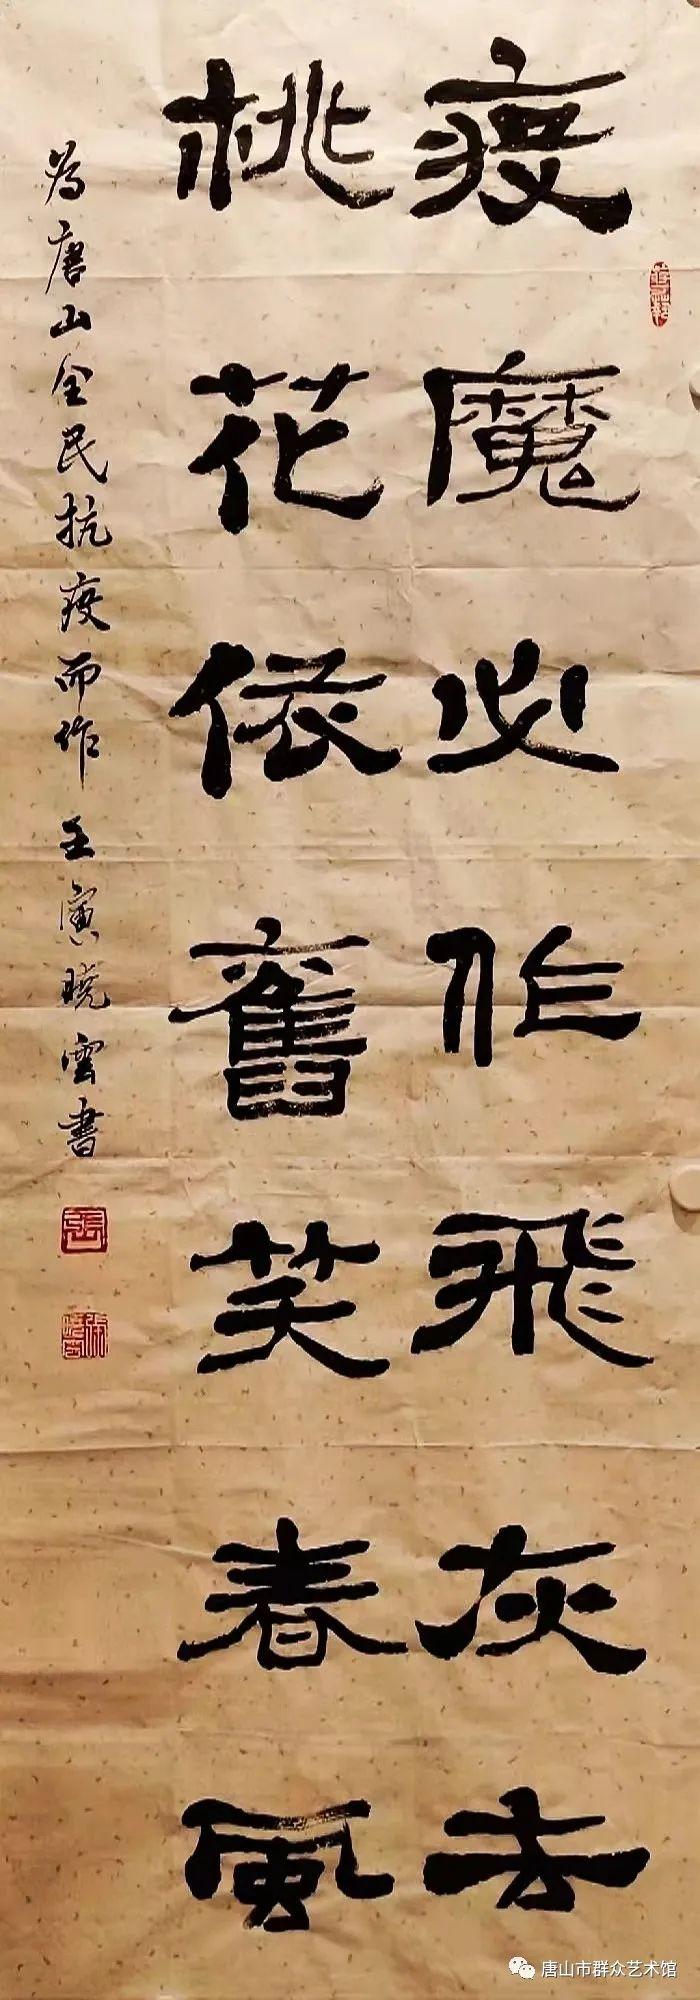 疫魔必作飛灰去
桃花依舊笑春風
为唐山全民抗疫而作 壬寅晓雲書
唐山市群众艺术馆